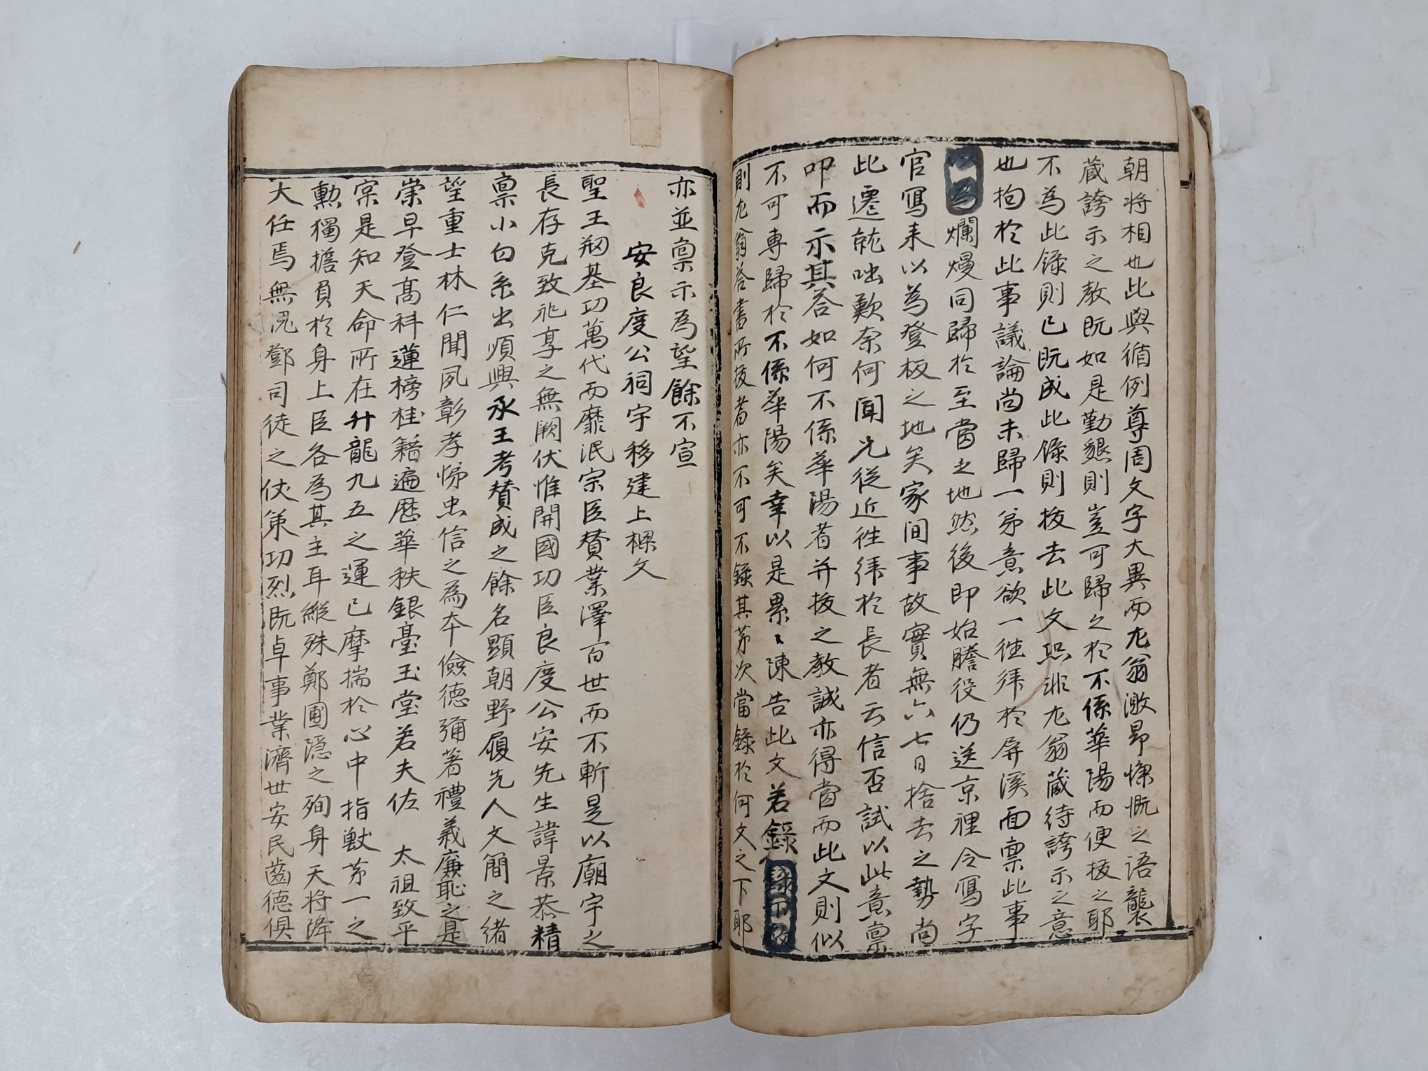 朝將相也此與循例尊周文字大異而尤翁激昂慷慨之語襲
藏誇示之教既如是勤懇則豈可歸之於不係華陽而便拔之耶
不為此錄則已既成此錄則拔去此文恐非尤翁藏待誇示之意
也拘於此事議論尚未歸一弟意欲一徃拜於屏溪面稟此事
爛熳同歸於至當之地然後即始謄役仍送京裡令寫字
官寫来以為登板之地矣家間事故實無六七日捨去之勢尚
此遷就咄歎奈何聞兄從近徃拜於長者云信否試以此意稟
叩而示其答如何不係華陽者并拔之教誠亦得當而此文則似
不可專歸於不係華陽矣幸以是累〻陳告此文若錄
則尤翁答書所拔者亦不可不錄其第次當錄於何文之下耶
亦並稟示為望餘不宣
安良度公祠宇移建上樑文
聖王刱基功萬代而靡泯宗臣賛業澤百世而不斬是以廟宇之
長存克致祀享之無闕伏惟開國功臣良度公安先生諱景恭精
稟小白系出順興永王考賛成之餘名顯朝野履先人文簡之緒
望重士林仁聞夙彰孝悌忠信之為本儉德彌著禮義廉恥之是
崇早登高科蓮榜桂籍遍歷華秩銀臺玉堂若夫佐 太祖致平
寀是知天命所在升龍九五之運已摩揣於心中指獸第一之
勳獨擔負於身上臣各為其主耳縱殊鄭圃隱之殉身天將降
大任焉無愧鄧司徒之伏策功烈既卓事業濟世安民齒德俱